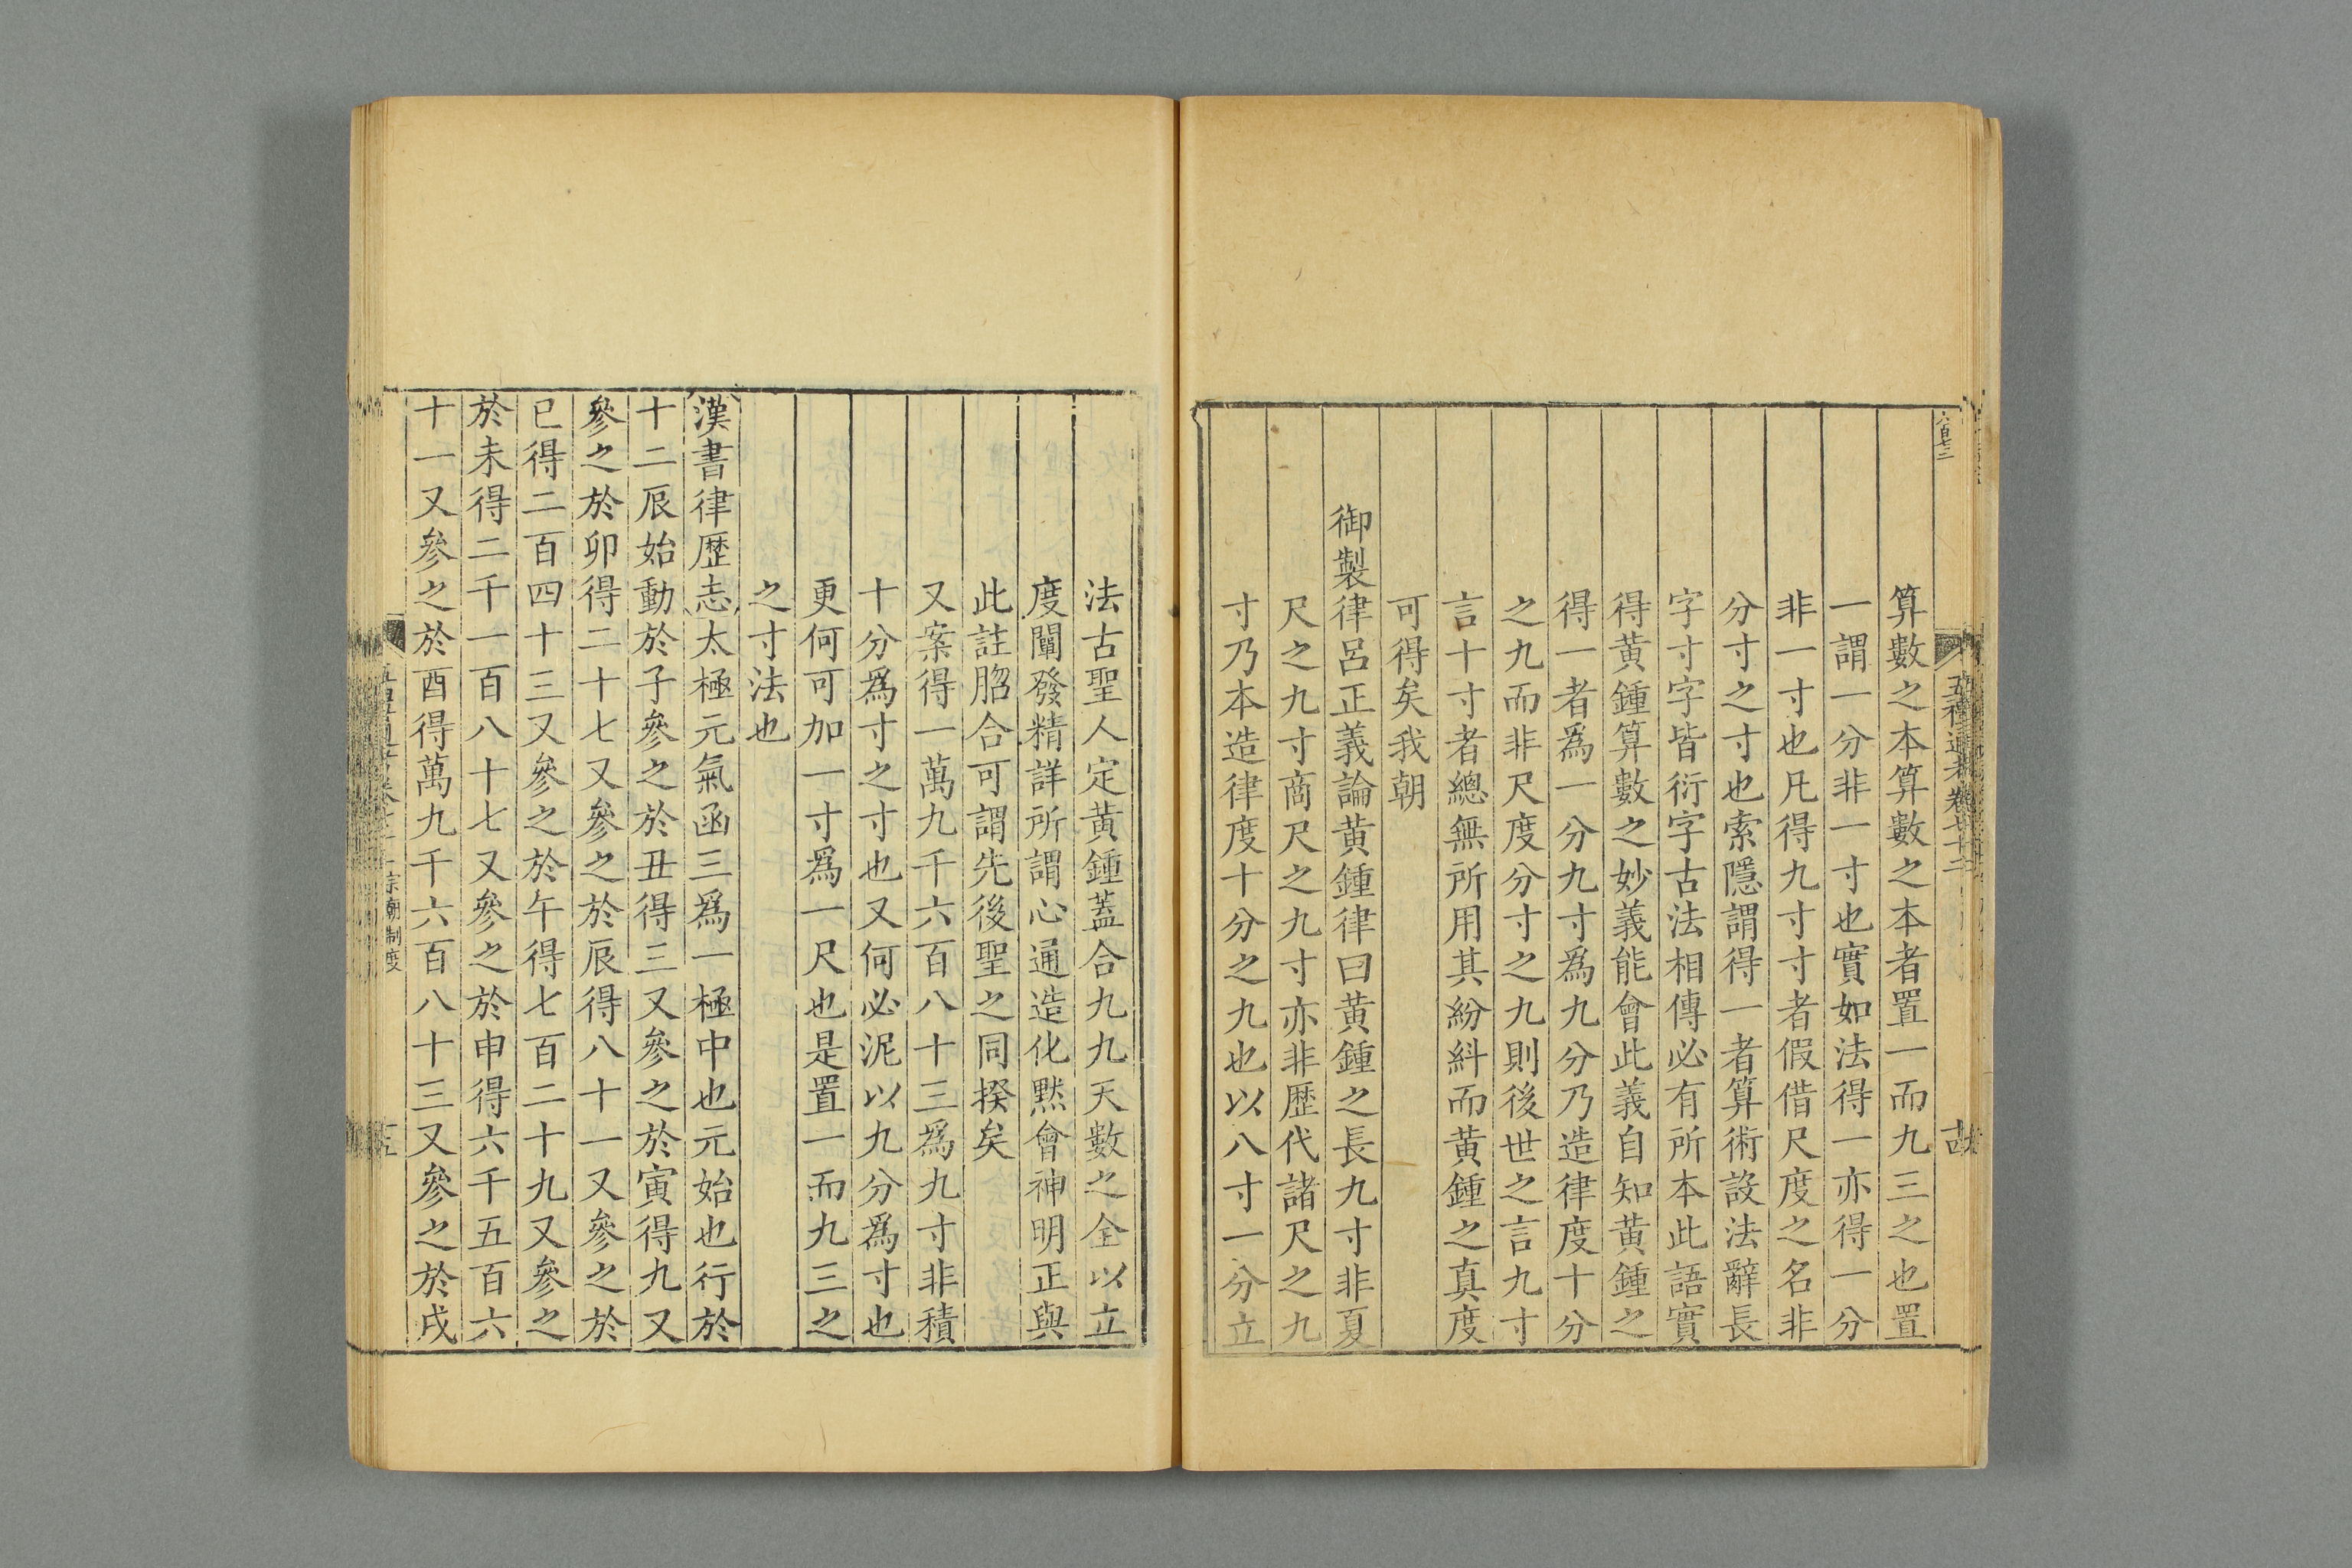 六百七三
五禮通考卷七十二
算數之本算數之本者置一而九三之也置
一謂一分非一寸也實如法得一亦得一分
非一寸也凡得九寸寸者假借尺度之名非
分寸之寸也索隱謂得一者算術設法辭長
字寸字皆衍字古法相傳必有所本此語實
得黃鍾算數之妙義能會此義自知黃鍾之
得一者爲一分九寸爲九分乃造律度十分
之九而非尺度分寸之九則後世之言九寸
言十寸者總無所用其紛糾而黃鍾之真度
可得矣我朝
御製律呂正義論黃鍾律曰黃鍾之長九寸非夏
尺之九寸商尺之九寸亦非歷代諸尺之九
寸乃本造律度十分之九也以八寸一分立
法古聖人定黃鍾蓋合九九天數之全以立
度闡發精詳所謂心通造化黙會神明正與
此註脗合可謂先後聖之同揆矣
又案得一萬九千六百八十三爲九寸非積
十分爲寸之寸也又何必泥以九分爲寸也
更何可加一寸爲一尺也是置一而九三之
之寸法也
漢書律歷志太極元氣函三爲一極中也元始也行於
十二辰始動於子參之於丑得三又參之於寅得九又
參之於卯得二十七又參之於辰得八十一又參之於
巳得二百四十三又參之於午得七百二十九又參之
於未得二千一百八十七又參之於申得六千五百六
十一又參之於酉得萬九千六百八十三又參之於戌
宗廟制度